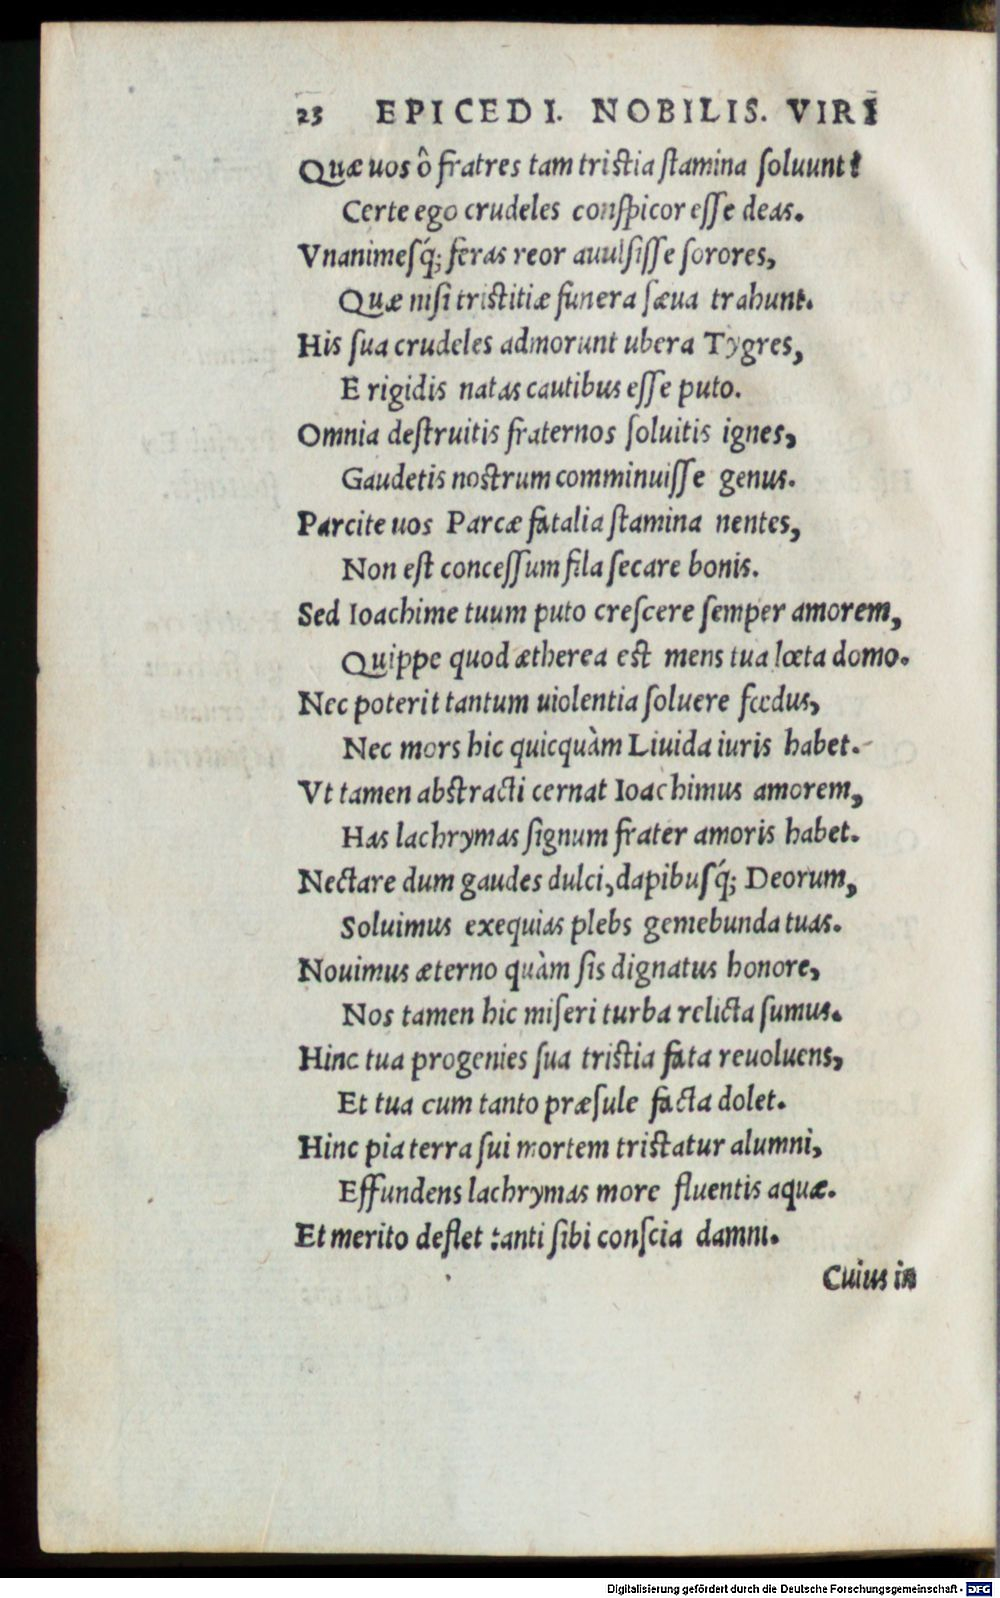 23 EPICEDI. NOBILIS. VIRI
Quæ uos ô fratres tam tristia stamina soluunt?
Certe ego crudeles conspicor esse deas.
Vnanimesq́; feras reor auulsisse sorores,
Quæ nisi tristitiæ funera sæua trahunt.
His sua crudeles admorunt ubera Tygres,
E rigidis natas cautibus esse puto.
Omnia destruitis fraternos soluitis ignes,
Gaudetis nostrum comminuisse genus.
Parcite uos Parcæ fatalia stamina nentes,
Non est concessum fila secare bonis.
Sed Ioachime tuum puto crescere semper amorem,
Quippe quod ætherea est mens tua lœta domo.
Nec poterit tantum uiolentia soluere fœdus,
Nec mors hic quicquàm Liuida iuris habet.
Vt tamen abstracti cernat Ioachimus amorem,
Has lachrymas signum frater amoris habet.
Nectare dum gaudes dulci, dapibusq́; Deorum,
Soluimus exequias plebs gemebunda tuas.
Nouimus æterno quàm sis dignatus honore,
Nos tamen hic miseri turba relicta sumus.
Hinc tua progenies sua tristia fata reuoluens,
Et tua cum tanto præsule facta dolet.
Hinc pia terra sui mortem tristatur alumni,
Effundens lachrymas more fluentis aquæ.
Et merito deflet tanti sibi conscia damni.
Cuius in
Digitalisierung gefördert durch die Deutsche Forschungsgemeinschaft - DFG